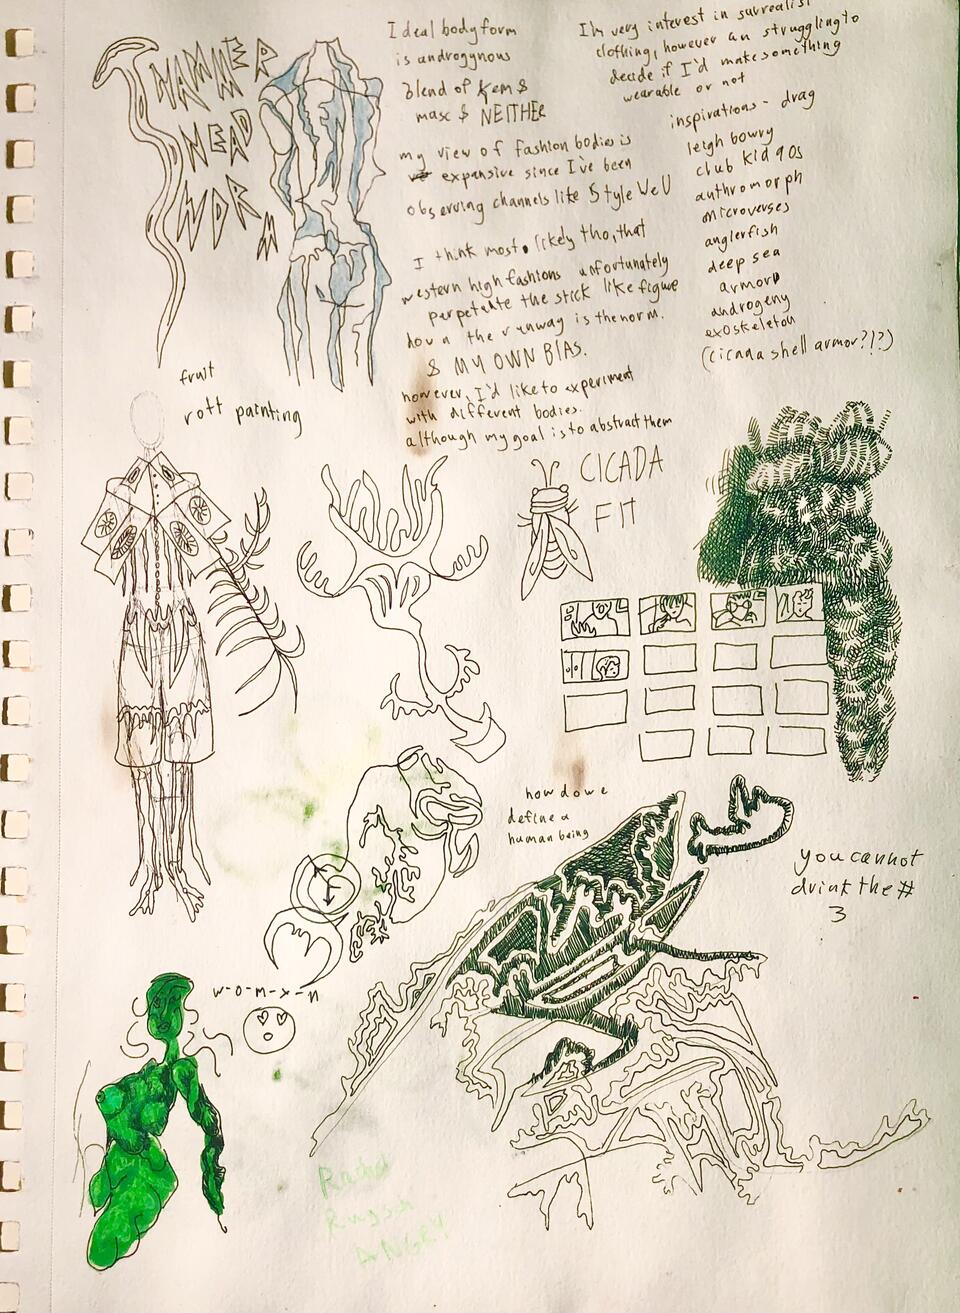 HAMMER
HEAD
WORM
Ideal body form
is androgynous
blend of fem &
masc & NEITHER
my view of fashion bodies is
expansive since I've been
observing channels like Style WeU
I think most likely tho, that
western high fashions unfortunately
perpetuate the stick like figure
down the runway is the norm.
& MY OWN BIAS.
however, I'd like to experiment
with different bodies.
although my goal is to abstract them
I'm very interest in surrealist
clothing, however am struggling to
decide if I'd make something
wearable or not
inspirations - drag
leigh bowry
club kid 90s
anthromorph
microverses
anglerfish
deep sea
armor
androgeny
exoskeleton
(cicada shell armor?!?)
fruit
rott painting
CICADA
FIT
how do we
define a
human being
you cannot
drink the #
3
w-o-m-x-n
ANGRY